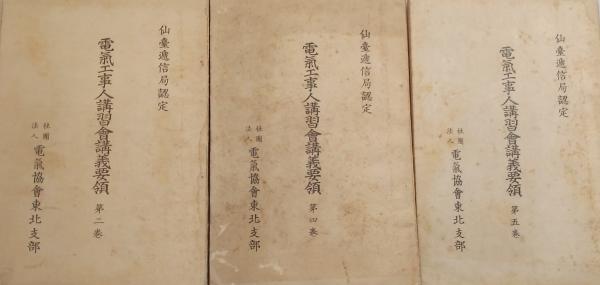 仙臺遞信局認定
電氣工事人講習會講義要領 第二卷
社團法人 電氣協會東北支部
仙臺遞信局認定
電氣工事人講習會講義要領 第四卷
社團法人 電氣協會東北支部
仙臺遞信局認定
電氣工事人講習會講義要領 第五卷
社團法人 電氣協會東北支部